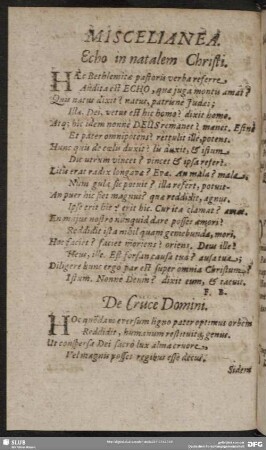 MISCELIANEA.
Echo in natalem Christi.
HÆc Bethlemitæ pastoris verba referre
Audita est ECHO, quæ juga montis amat?
Quis natus dixit? natus, patrione Judes;
Ista. Dei. vetus est hic homo? dixit homo.
Atq; hic idem nonne DEUS remanet? manet. Estne
Et pater omnipotens? rettulit ille, potens.
Hunc quis de cœlo duxit? is duxit, & istum
Die utrum vincet? vincet & ipsa refert.
erat radix longæva? Eva. An mala? mala.
Nisu gula sic potuit? illa refert, potuit.
An puer hic fiet magnus? quæ reddidit, agnus.
Ipse erit hic? erit hic. Cur ita clamat? amat.
En mijus nostro nunquid dare posset amori?
Reddidit ista nihil quam gemebunda, mori.
Hoc faciet? faciet moriens? oriens. Deus ille?
Heus, ille. Est forsan causa tua? ausa tua;
Diligere hunc ergo par est super omnia Christum?
Istum. Nonne Deum? dixit eum, & tacuit.
F. B.
De Cruce Domini.
HOc quodam erersum ligno pater optimus orbem
Reddidit, humanum restituitq; genus.
Ut consperse Dei sacro lux alma cruore
Vel magnis possis regibus esse decus.
Sidera
SLUB
DFG